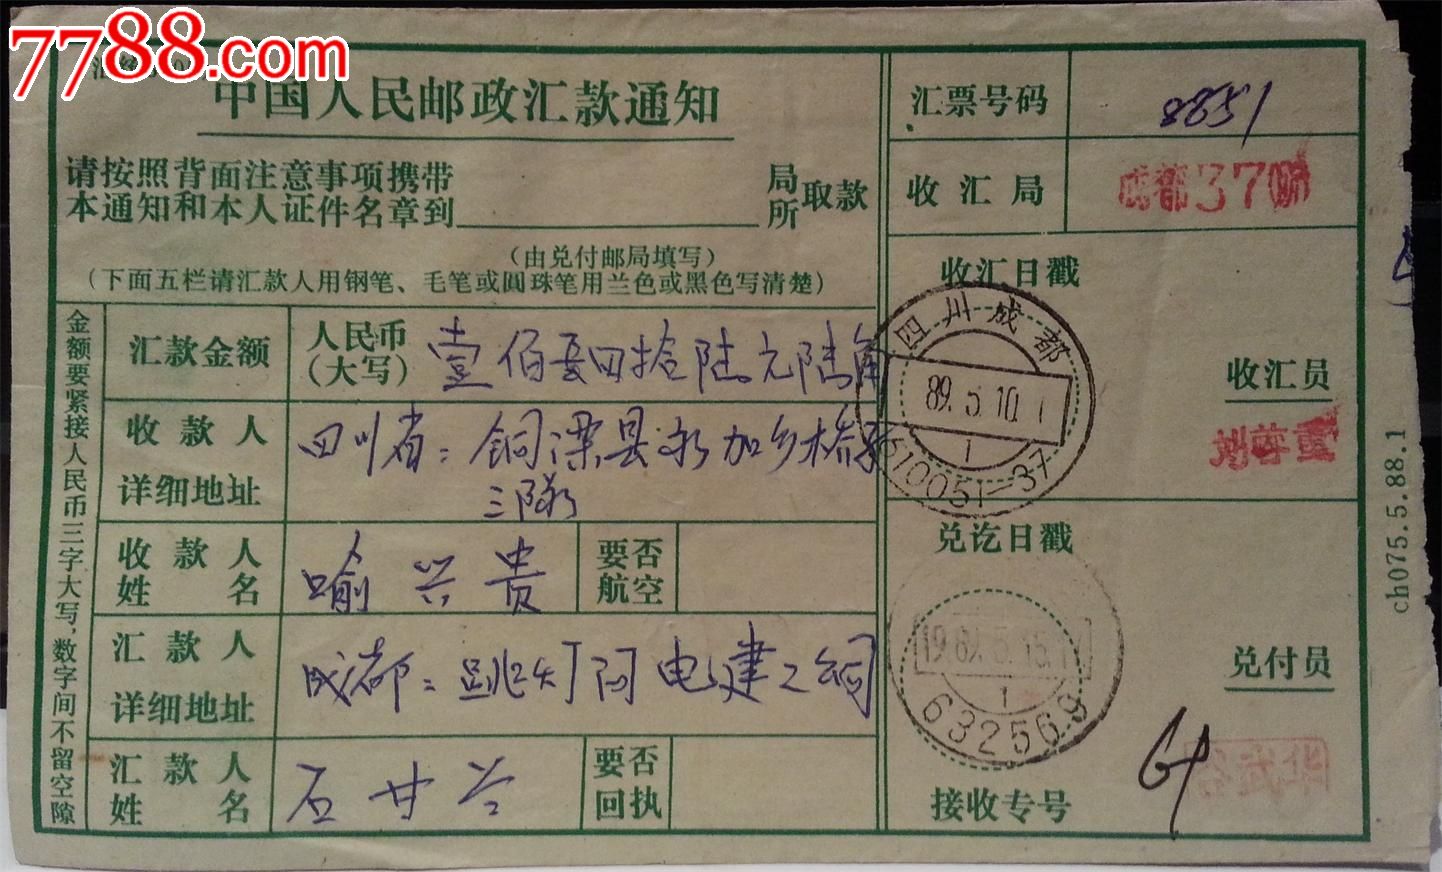 7788.com
中国人民邮政汇款通知
请按照背面注意事项携带
本通知和本人证件名章到
局
所
取款
(由兑付邮局填写)
(下面五栏请汇款人用钢笔、毛笔或圆珠笔用兰色或黑色写清楚)
金额要紧接人民币三字大写，数字间不留空隙
汇款金额
人民币
(大写)
壹佰 四拾陆元陆角
收款人
详细地址
四川省：铜梁县永加乡
三队
收款人
姓名
喻兴贵
要否
航空
汇款人
详细地址
成都：跳
电建
汇款人
姓名
石甘兴
要否
回执
汇票号码
8851
收汇局
成都37
收汇日戳
四川成都
89.5.10.
1
610051-37
收汇员
兑讫日戳
1989.5.15.
1
632569
兑付员
接收专号
ch075.5.88.1